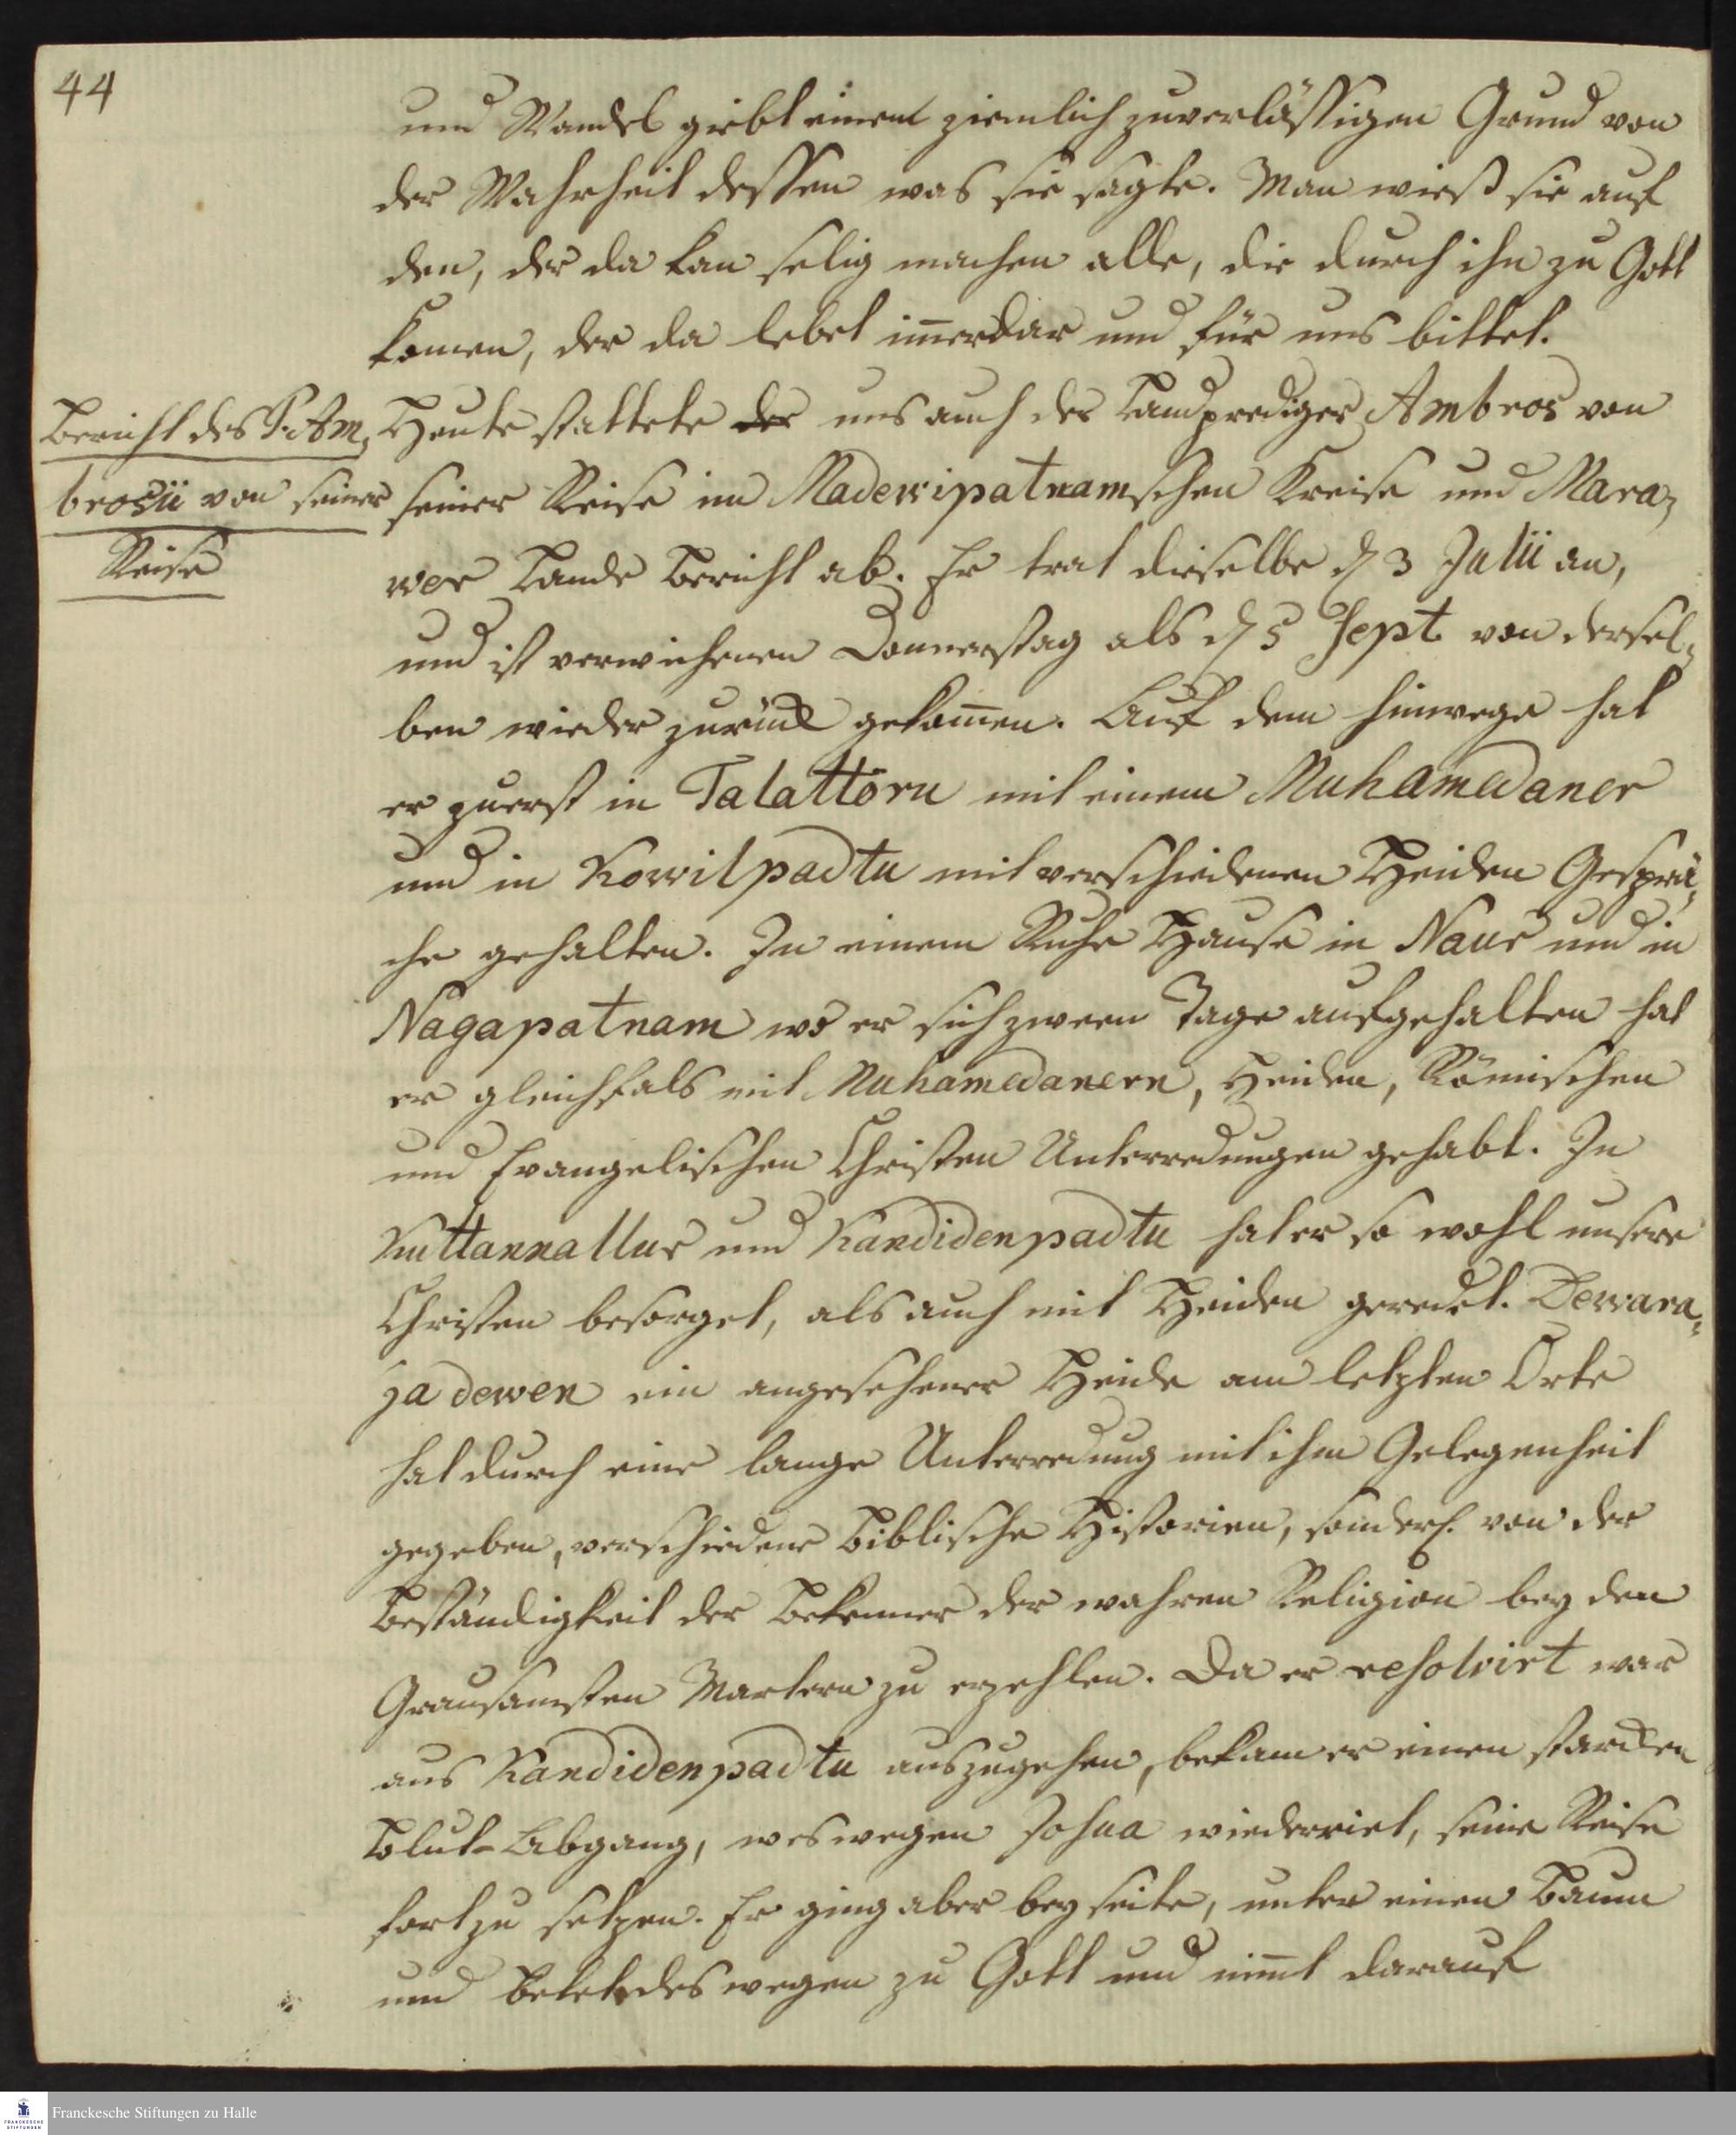 44
und Wandel giebt einen ziemlich zuverlässigen Grund von
der Wahrheit dessen was sie sagte. Man wieß sie auf
den, der da kan selig machen alle, die durch ihn zu Gott
komen, der da lebet im̄erdar und für uns bittet.
Bericht des P. Am-
brosii von seiner
Reise
Heute stattete der uns auch der Landprediger Ambros von
seiner Reise im Madewipatnamschen Kreise und Mara-
wer Lande Bericht ab. Er trat dieselbe d 3 Julii an,
und ist verwichenen Donnerstag als d 5 Sept. von dersel-
ben wieder zurück gekom̄en. Auf dem Hinwege hat
er zuerst in Talattöru mit einem Muhamedaner
und in Kowilpadtu mit verschiedenen Heiden Gesprä-
che gehalten. In einem Ruhe Hause in Naur und in
Nagapatnam wo er sich zween Tage aufgehalten hat
er gleichfals mit Muhamedanern, Heiden, Römischen
und Evangelischen Christen Unterredungen gehabt. In
Kuttannallur und Kandidenpadtu hat er so wohl unsere
Christen besorget, als auch mit Heiden geredet. Dewara-
ja dewen ein angesehener Heide am letzten Orte
hat durch eine lange Unterredung mit ihm Gelegenheit
gegeben, verschiedene Biblische Historien, sonderl. von der
Beständigkeit der Bekenner der wahren Religion bey den
Grausamsten Martern zu erzehlen. Da er resolvirt war
aus Kandidenpadtu auszugehen, bekam er einen starcken
Blut-Abgang, weswegen Josua wiederriet, seine Reise
fortzu setzen. Er ging aber bey seite, unter einen Baum
und betet deswegen zu Gott und nim̄t darauf
Franckesche Stiftungen zu Halle